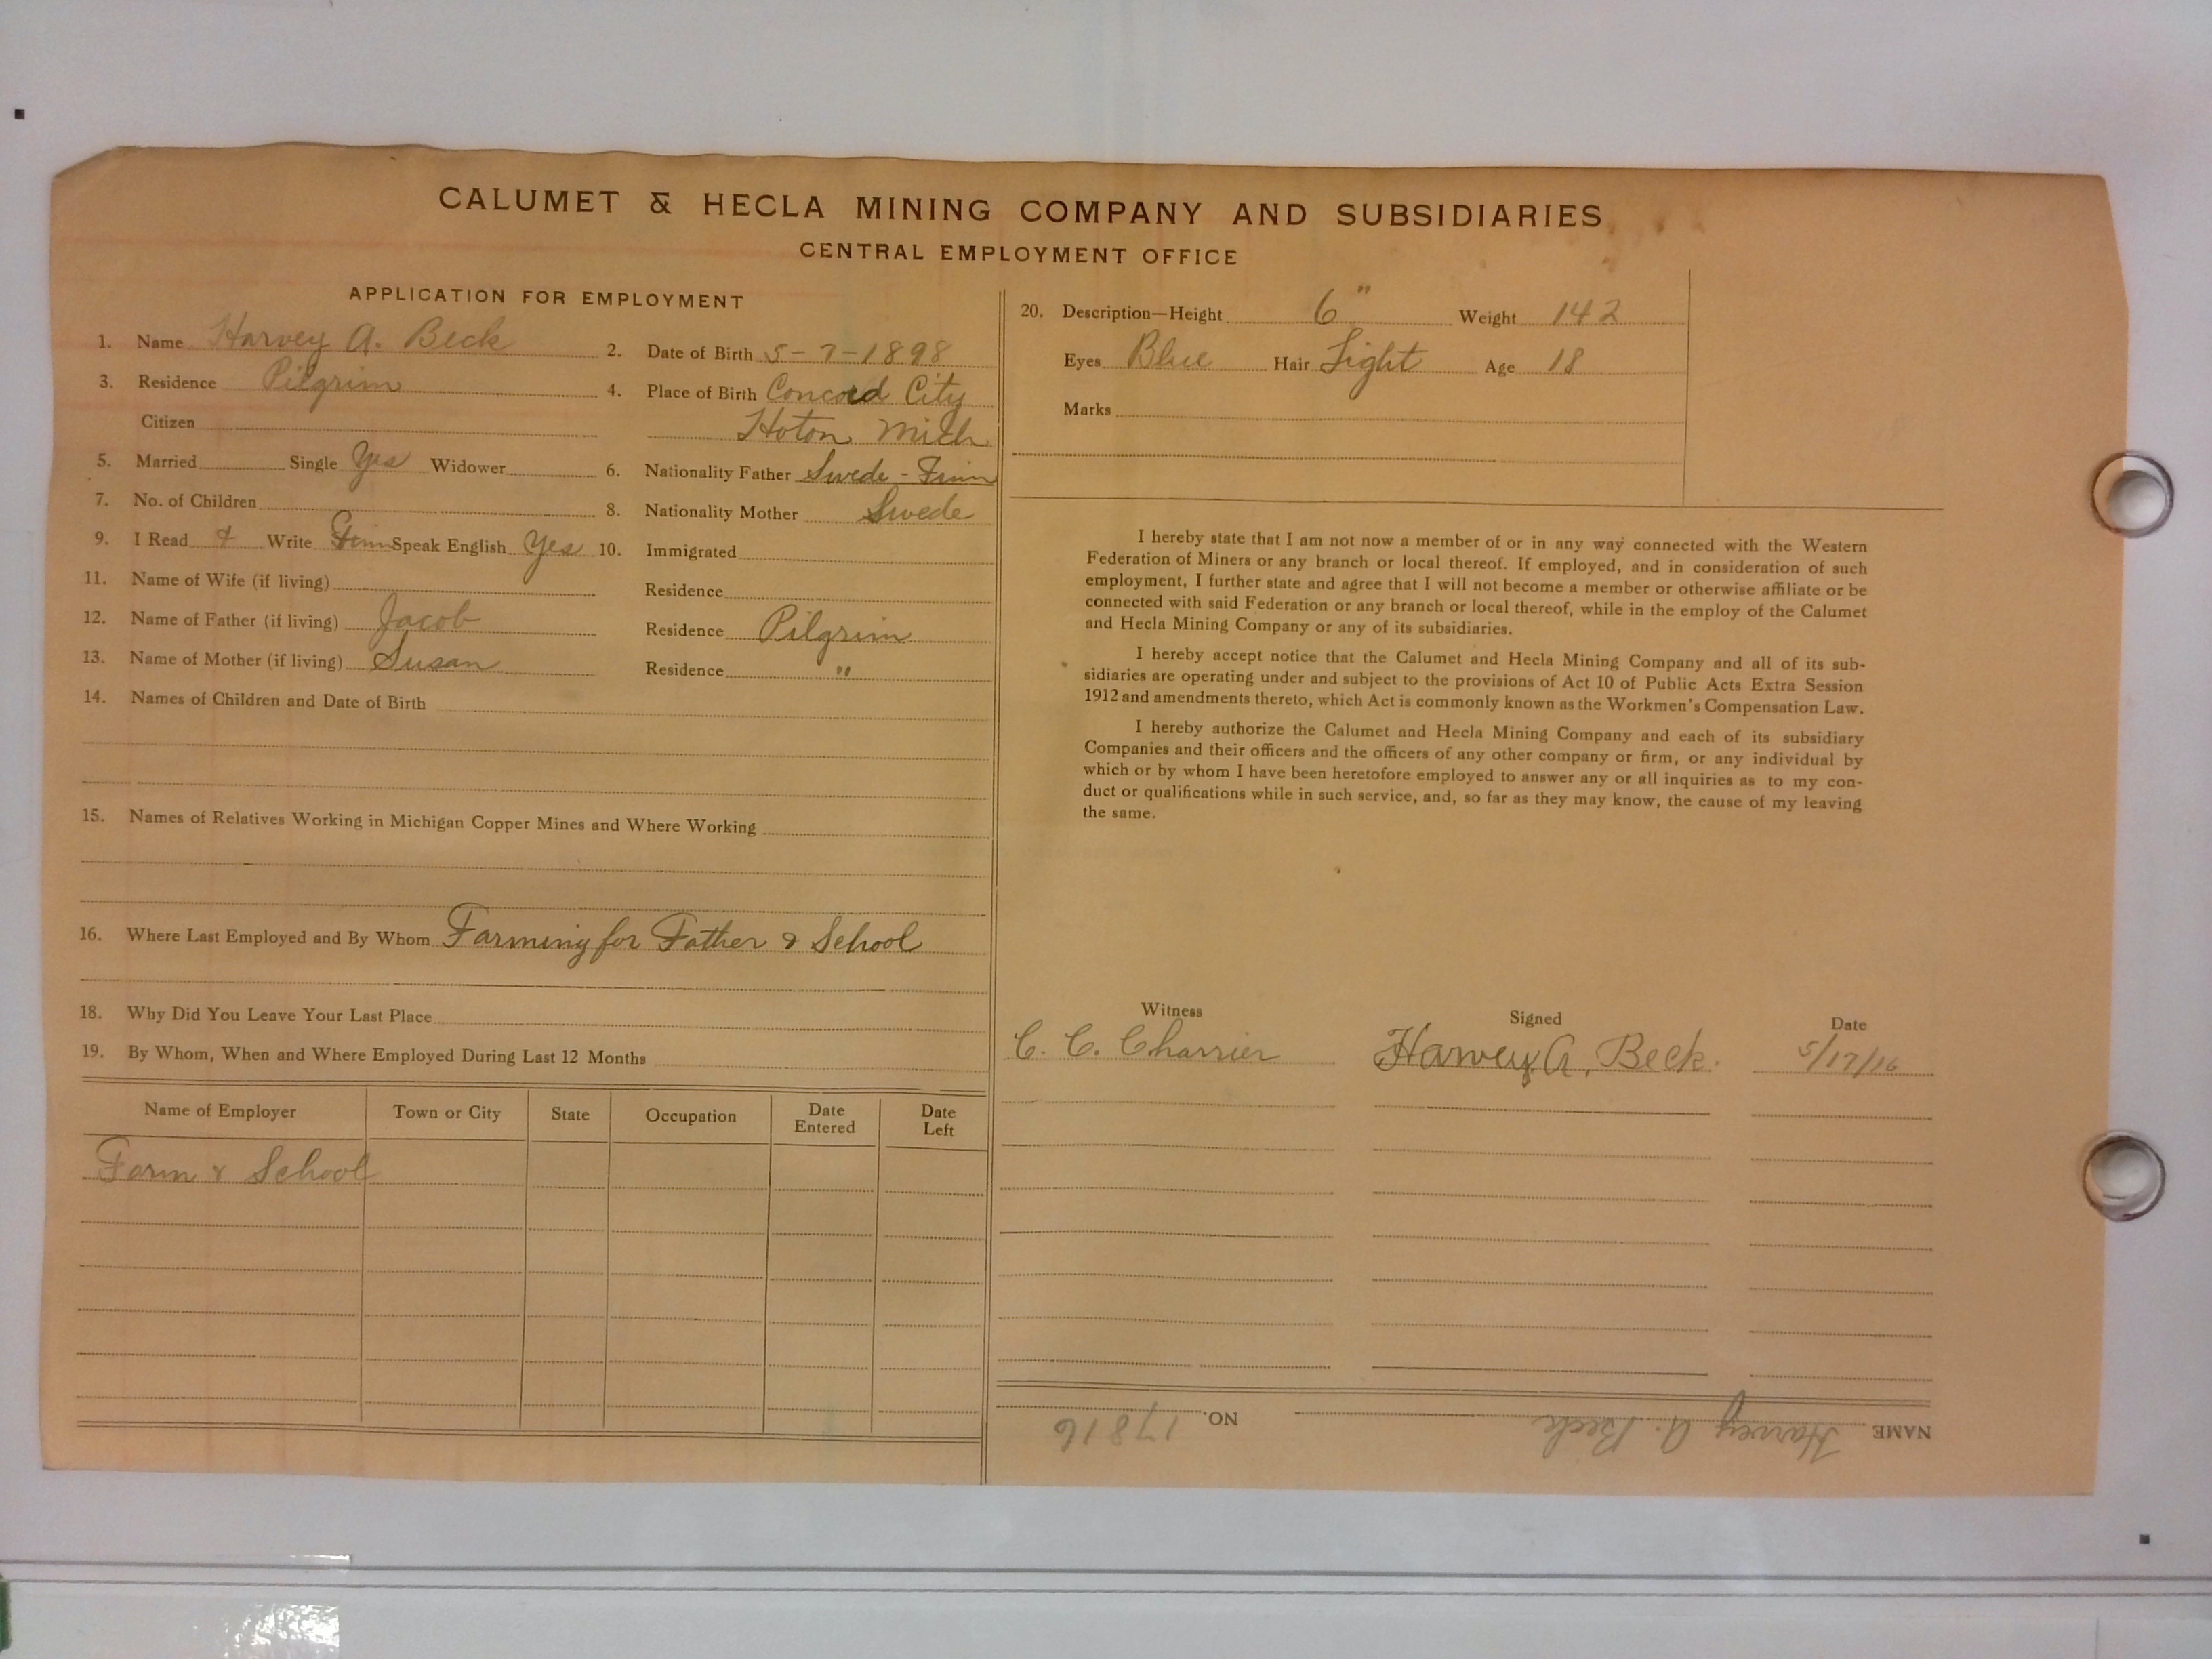 CALUMET & HECLA MINING COMPANY AND SUBSIDIARIES
CENTRAL EMPLOYMENT OFFICE
APPLICATION FOR EMPLOYMENT
1. Name Harvey A. Beck 2. Date of Birth 5-7-1898
3. Residence Pilgrim 4. Place of Birth Concord City
Citizen Hoton Mich
5. Married Single Yes Widower 6. Nationality Father Swede-Finn
7. No. of Children 8. Nationality Mother Swede
9. I Read & Write Finn Speak English Yes 10. Immigrated
11. Name of Wife (if living) Residence
12. Name of Father (if living) Jacob Residence Pilgrim
13. Name of Mother (if living) Susan Residence "
14. Names of Children and Date of Birth
15. Names of Relatives Working in Michigan Copper Mines and Where Working
16. Where Last Employed and By Whom Farming for Father & School
18. Why Did You Leave Your Last Place
19. By Whom, When and Where Employed During Last 12 Months
Name of Employer Town or City State Occupation Date Entered Date Left
Farm & School
20. Description—Height 6" Weight 142
Eyes Blue Hair Light Age 18
Marks
I hereby state that I am not now a member of or in any way connected with the Western
Federation of Miners or any branch or local thereof. If employed, and in consideration of such
employment, I further state and agree that I will not become a member or otherwise affiliate or be
connected with said Federation or any branch or local thereof, while in the employ of the Calumet
and Hecla Mining Company or any of its subsidiaries.
I hereby accept notice that the Calumet and Hecla Mining Company and all of its sub-
sidiaries are operating under and subject to the provisions of Act 10 of Public Acts Extra Session
1912 and amendments thereto, which Act is commonly known as the Workmen's Compensation Law.
I hereby authorize the Calumet and Hecla Mining Company and each of its subsidiary
Companies and their officers and the officers of any other company or firm, or any individual by
which or by whom I have been heretofore employed to answer any or all inquiries as to my con-
duct or qualifications while in such service, and, so far as they may know, the cause of my leaving
the same.
Witness Signed Date
C. C. Charrier Harvey A. Beck. 5/17/16
NAME Harvey A. Beck NO. 17816